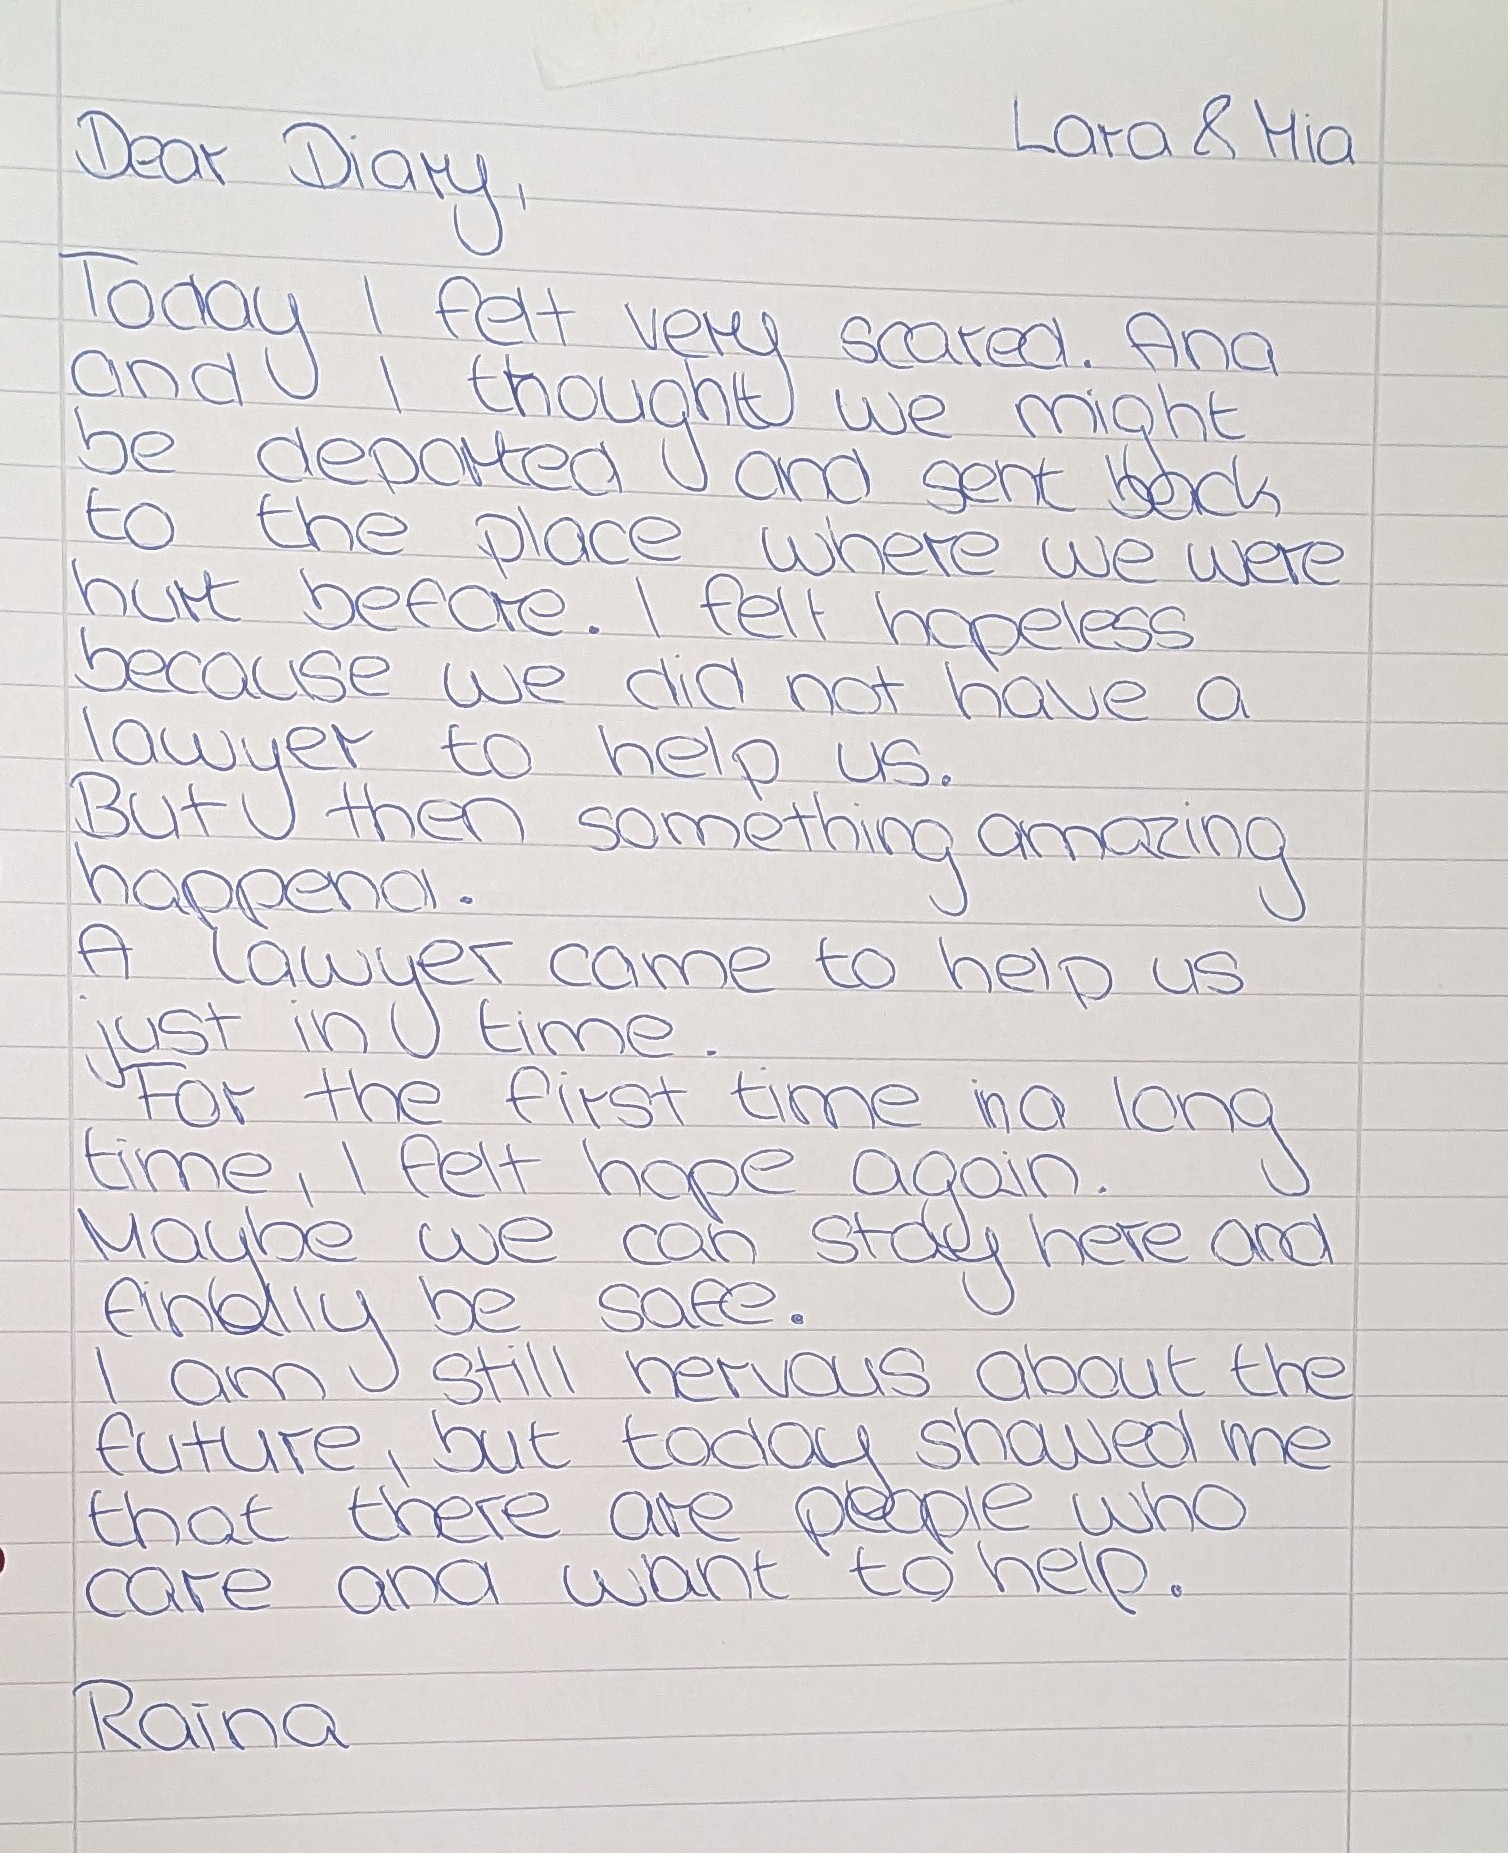 Lara & Mia
Dear Diary,
Today I felt very scared. Ana
and I thought we might
be deported and sent back
to the place where we were
hurt before. I felt hopeless
because we did not have a
lawyer to help us.
But then something amazing
happend.
A lawyer came to help us
just in time.
For the first time in a long
time, I felt hope again.
Maybe we can stay here and
finally be safe.
I am still nervous about the
future, but today showed me
that there are people who
care and want to help.
Raina